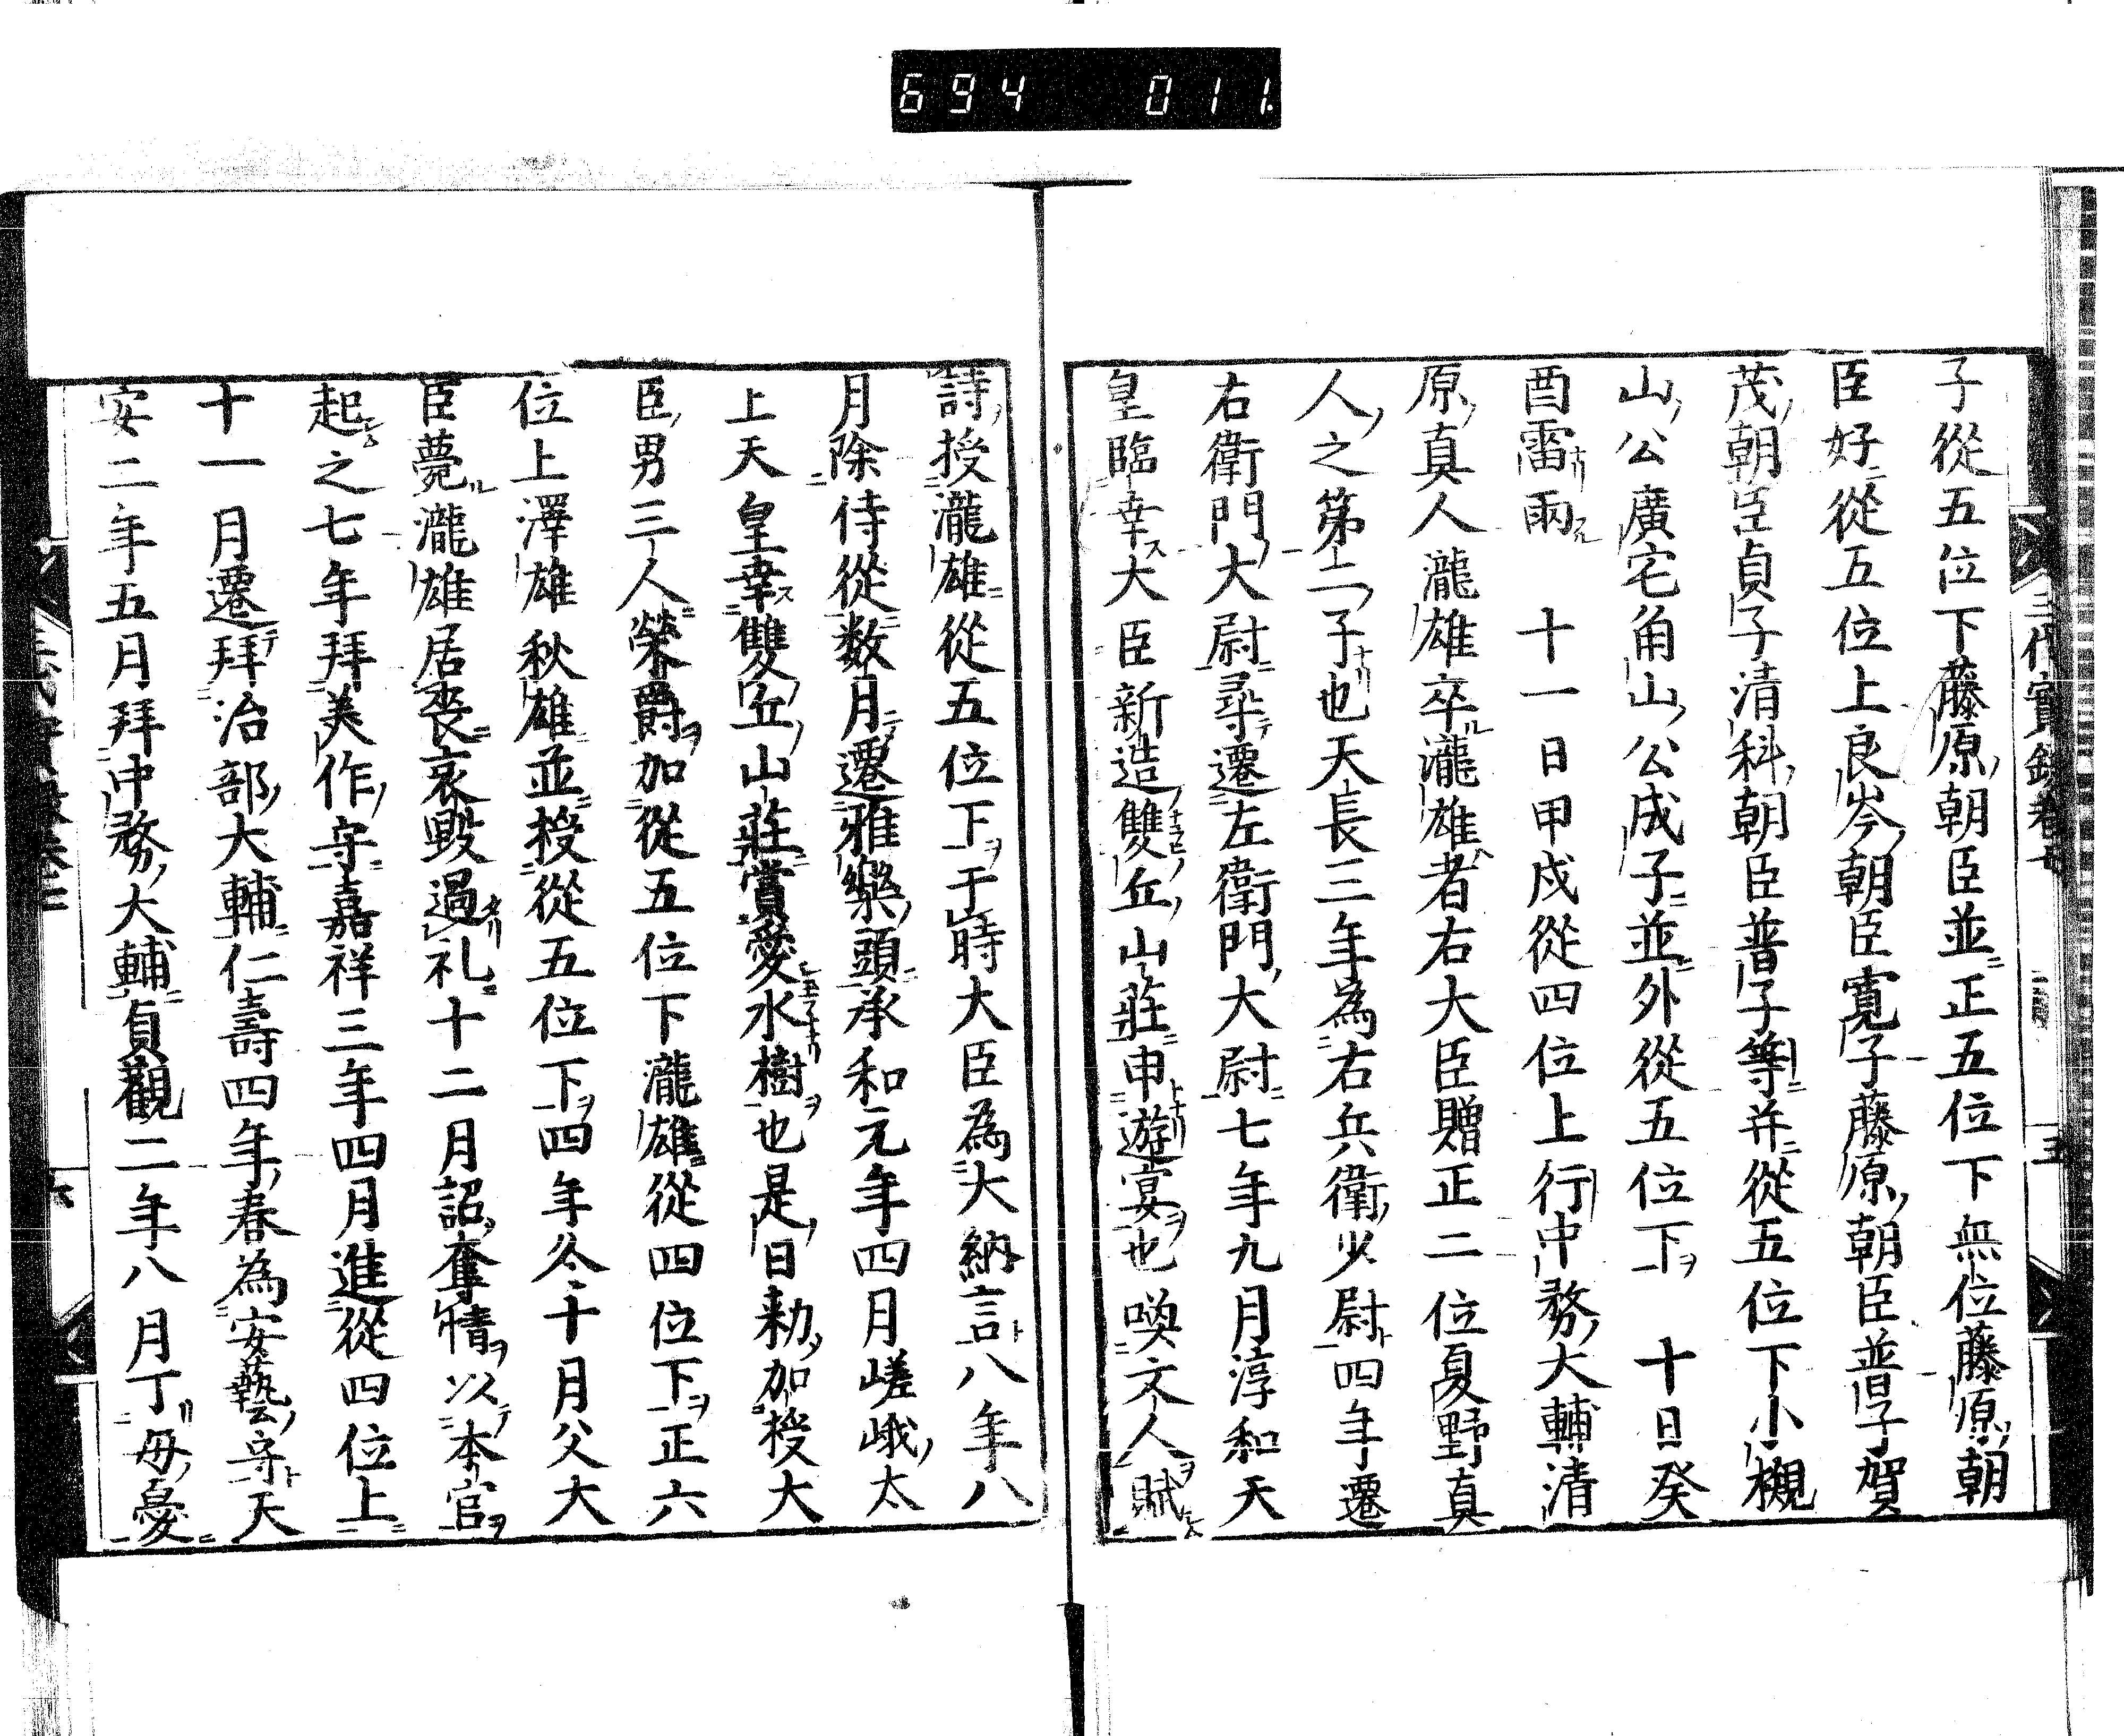 694 011
三代實録卷七
五
子從五位下藤原朝臣並正五位下無位藤原朝
臣好從五位上良岑朝臣寛子藤原朝臣普子賀
茂朝臣貞子清科朝臣普子等并從五位下小槻
山公廣宅角山公成子並外從五位下 十日癸
酉雷雨 十一日甲戌從四位上行中務大輔清
原真人瀧雄卒瀧雄者右大臣贈正二位夏野真
人之第二子也天長三年為右兵衛少尉四年遷
右衛門大尉尋遷左衛門大尉七年九月淳和天
皇臨幸大臣新造雙丘山莊申遊宴也喚文人賦
詩授瀧雄從五位下于時大臣為大納言八年八
月除侍從数月遷雅樂頭承和元年四月嵯峨太
上天皇幸雙丘山莊賞愛水樹也是日勅加授大
臣男三人榮爵加從五位下瀧雄從四位下正六
位上澤雄秋雄並授從五位下四年冬十月父大
臣薨瀧雄居喪哀毀過礼十二月詔奪情以本官
起之七年拜美作守嘉祥三年四月進從四位上
十一月遷拜治部大輔仁壽四年春為安藝守天
安二年五月拜中務大輔貞觀二年八月丁母憂
六